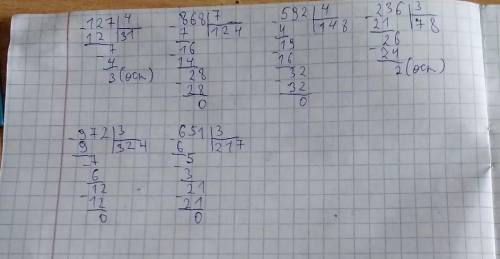 -127 | 4   -868 | 7   -592 | 4   -236 | 3
12 | 31   7 | 124   4 | 148   21 | 78
-7   -16   -19   -26
4   14   16   24
3 (ост)   -28   -32   2 (ост)
28   32
0   0
-972 | 3   -651 | 3
9 | 324   6 | 217
-7   -5
6   3
-12   -21
12   21
0   0